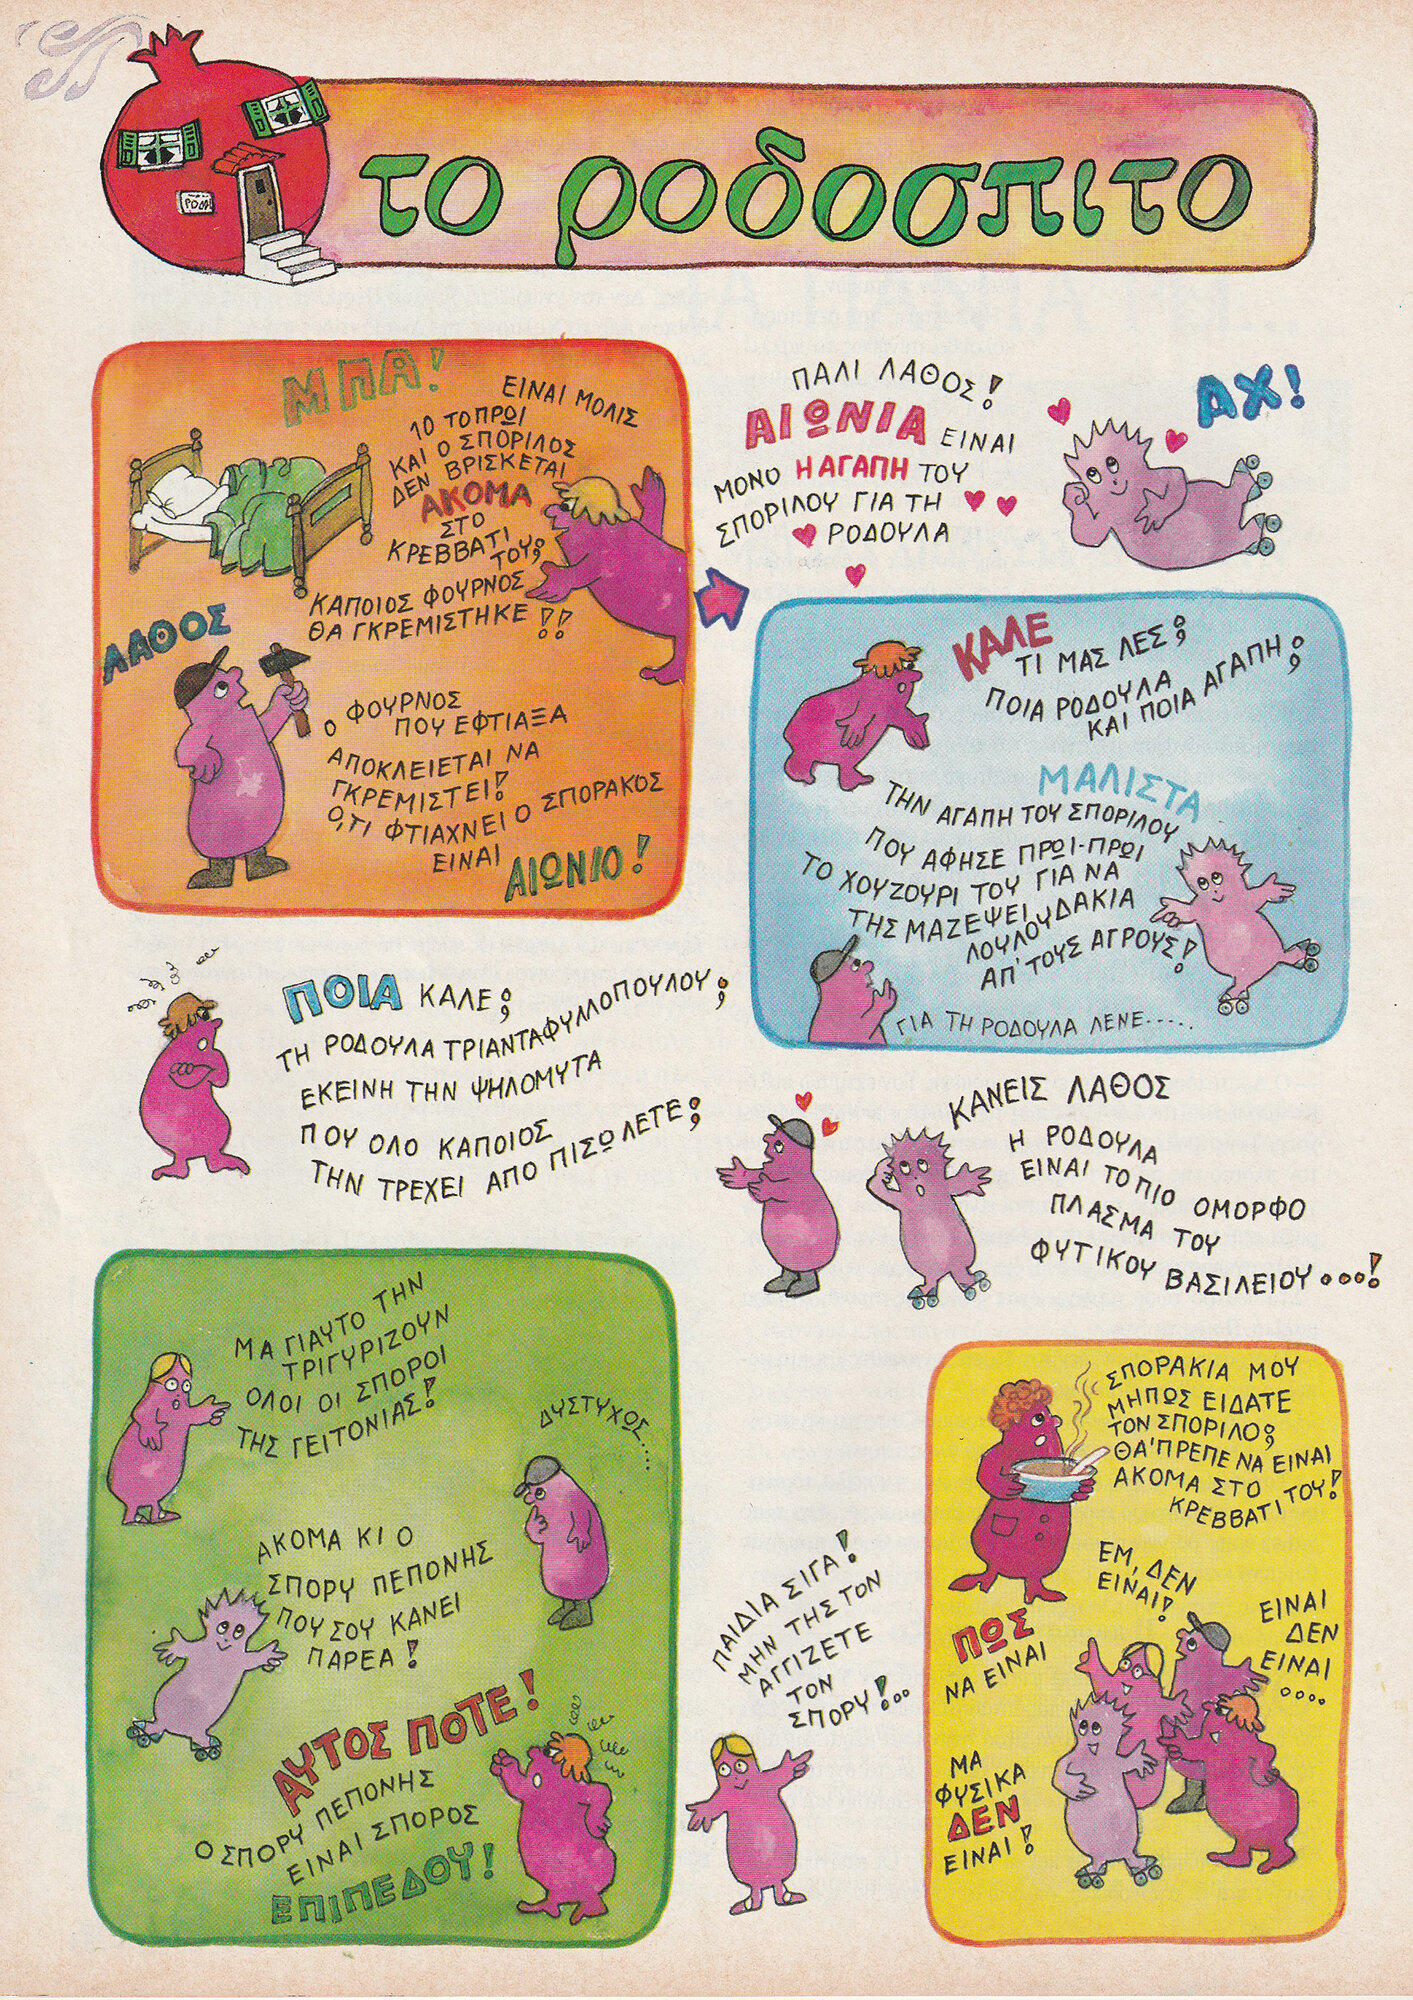 ΡΟΔΙ
το ροδοσπιτο
ΜΠΑ!
ΕΙΝΑΙ ΜΟΛΙΣ
10 ΤΟ ΠΡΩΙ
ΚΑΙ Ο ΣΠΟΡΙΛΟΣ
ΔΕΝ ΒΡΙΣΚΕΤΑΙ
ΑΚΟΜΑ
ΣΤΟ
ΚΡΕΒΒΑΤΙ
ΤΟΥ;
ΚΑΠΟΙΟΣ ΦΟΥΡΝΟΣ
ΘΑ ΓΚΡΕΜΙΣΤΗΚΕ!!
ΛΑΘΟΣ
Ο ΦΟΥΡΝΟΣ
ΠΟΥ ΕΦΤΙΑΞΑ
ΑΠΟΚΛΕΙΕΤΑΙ ΝΑ
ΓΚΡΕΜΙΣΤΕΙ!
Ο,ΤΙ ΦΤΙΑΧΝΕΙ Ο ΣΠΟΡΑΚΟΣ
ΕΙΝΑΙ
ΑΙΩΝΙΟ!
ΠΑΛΙ ΛΑΘΟΣ!
ΑΙΩΝΙΑ ΕΙΝΑΙ
ΜΟΝΟ Η ΑΓΑΠΗ ΤΟΥ
ΣΠΟΡΙΛΟΥ ΓΙΑ ΤΗ
ΡΟΔΟΥΛΑ
ΑΧ!
ΚΑΛΕ
ΤΙ ΜΑΣ ΛΕΣ;
ΠΟΙΑ ΡΟΔΟΥΛΑ
ΚΑΙ ΠΟΙΑ ΑΓΑΠΗ;
ΜΑΛΙΣΤΑ
ΤΗΝ ΑΓΑΠΗ ΤΟΥ ΣΠΟΡΙΛΟΥ
ΠΟΥ ΑΦΗΣΕ ΠΡΩΙ-ΠΡΩΙ
ΤΟ ΧΟΥΖΟΥΡΙ ΤΟΥ ΓΙΑ ΝΑ
ΤΗΣ ΜΑΖΕΨΕΙ
ΛΟΥΛΟΥΔΑΚΙΑ
ΑΠ' ΤΟΥΣ ΑΓΡΟΥΣ!
ΓΙΑ ΤΗ ΡΟΔΟΥΛΑ ΛΕΝΕ.....
ΠΟΙΑ ΚΑΛΕ;
ΤΗ ΡΟΔΟΥΛΑ ΤΡΙΑΝΤΑΦΥΛΛΟΠΟΥΛΟΥ;
ΕΚΕΙΝΗ ΤΗΝ ΨΗΛΟΜΥΤΑ
ΠΟΥ ΟΛΟ ΚΑΠΟΙΟΣ
ΤΗΝ ΤΡΕΧΕΙ ΑΠΟ ΠΙΣΩ ΛΕΤΕ;
ΚΑΝΕΙΣ ΛΑΘΟΣ
Η ΡΟΔΟΥΛΑ
ΕΙΝΑΙ ΤΟ ΠΙΟ ΟΜΟΡΦΟ
ΠΛΑΣΜΑ ΤΟΥ
ΦΥΤΙΚΟΥ ΒΑΣΙΛΕΙΟΥ...!
ΜΑ ΓΙΑΥΤΟ ΤΗΝ
ΤΡΙΓΥΡΙΖΟΥΝ
ΟΛΟΙ ΟΙ ΣΠΟΡΟΙ
ΤΗΣ ΓΕΙΤΟΝΙΑΣ!
ΔΥΣΤΥΧΩΣ....
ΑΚΟΜΑ ΚΙ Ο
ΣΠΟΡΥ ΠΕΠΟΝΗΣ
ΠΟΥ ΣΟΥ ΚΑΝΕΙ
ΠΑΡΕΑ!
ΑΥΤΟΣ ΠΟΤΕ!
Ο ΣΠΟΡΥ ΠΕΠΟΝΗΣ
ΕΙΝΑΙ ΣΠΟΡΟΣ
ΕΠΙΠΕΔΟΥ!
ΠΑΙΔΙΑ ΣΙΓΑ!
ΜΗΝ ΤΗΣ ΤΟΝ
ΑΓΓΙΖΕΤΕ
ΤΟΝ
ΣΠΟΡΥ!...
ΣΠΟΡΑΚΙΑ ΜΟΥ
ΜΗΠΩΣ ΕΙΔΑΤΕ
ΤΟΝ ΣΠΟΡΙΛΟ;
ΘΑ'ΠΡΕΠΕ ΝΑ ΕΙΝΑΙ
ΑΚΟΜΑ ΣΤΟ
ΚΡΕΒΒΑΤΙ ΤΟΥ!
ΕΜ, ΔΕΝ
ΕΙΝΑΙ!
ΠΩΣ
ΝΑ ΕΙΝΑΙ
ΕΙΝΑΙ
ΔΕΝ
ΕΙΝΑΙ
....
ΜΑ
ΦΥΣΙΚΑ
ΔΕΝ
ΕΙΝΑΙ!